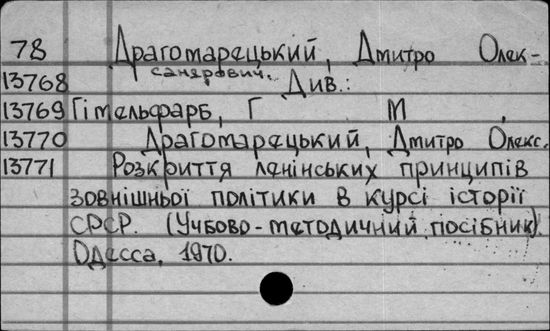 78 Драгомарецький, Дмитро Олек-
сандрович.
13768 Див.:
13769 Гімельфарб, Г М ,
13770 Драгомарецький, Дмитро Олекс.
13771 Розкриття ленінських принципів
зовнішньої політики в курсі історії
СРСР. (Учбово-методичний посібник).
Одесса, 1970.